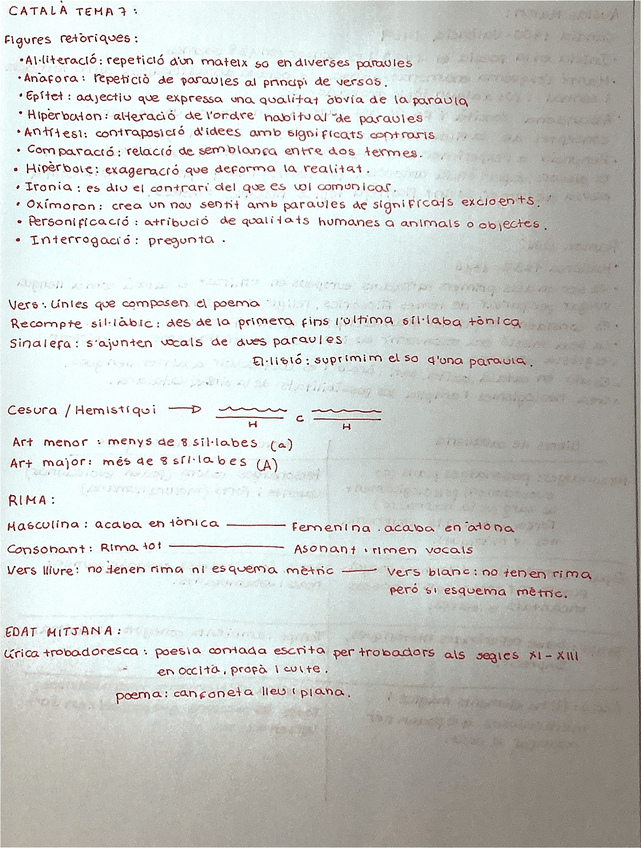 CATALÀ TEMA 7:
Figures retòriques:
• Al·literació: repetició d'un mateix so en diverses paraules
• Anàfora: repetició de paraules al principi de versos.
• Epítet: adjectiu que expressa una qualitat òbvia de la paraula
• Hipèrbaton: alteració de l'ordre habitual de paraules
• Antítesi: contraposició d'idees amb significats contraris
• Comparació: relació de semblança entre dos termes.
• Hipèrbole: exageració que deforma la realitat.
• Ironia: es diu el contrari del que es vol comunicar.
• Oxímoron: crea un nou sentit amb paraules de significats excloents.
• Personificació: atribució de qualitats humanes a animals o objectes.
• Interrogació: pregunta.
Vers: línies que composen el poema
Recompte sil·làbic: des de la primera fins l'última síl·laba tònica
Sinalefa: s'ajunten vocals de dues paraules
El·lisió: suprimim el so d'una paraula.
Cesura / Hemistiqui → H C H
Art menor: menys de 8 síl·labes (a)
Art major: més de 8 síl·labes (A)
RIMA:
Masculina: acaba en tònica — Femenina: acaba en àtona
Consonant: Rima tot — Asonant: rimen vocals
Vers lliure: no tenen rima ni esquema mètric — Vers blanc: no tenen rima
però si esquema mètric.
EDAT MITJANA:
Lírica trobadoresca: poesia contada escrita per trobadors als segles XI-XIII
en occità, propà i culte.
poema: cançoneta lleu i plana.